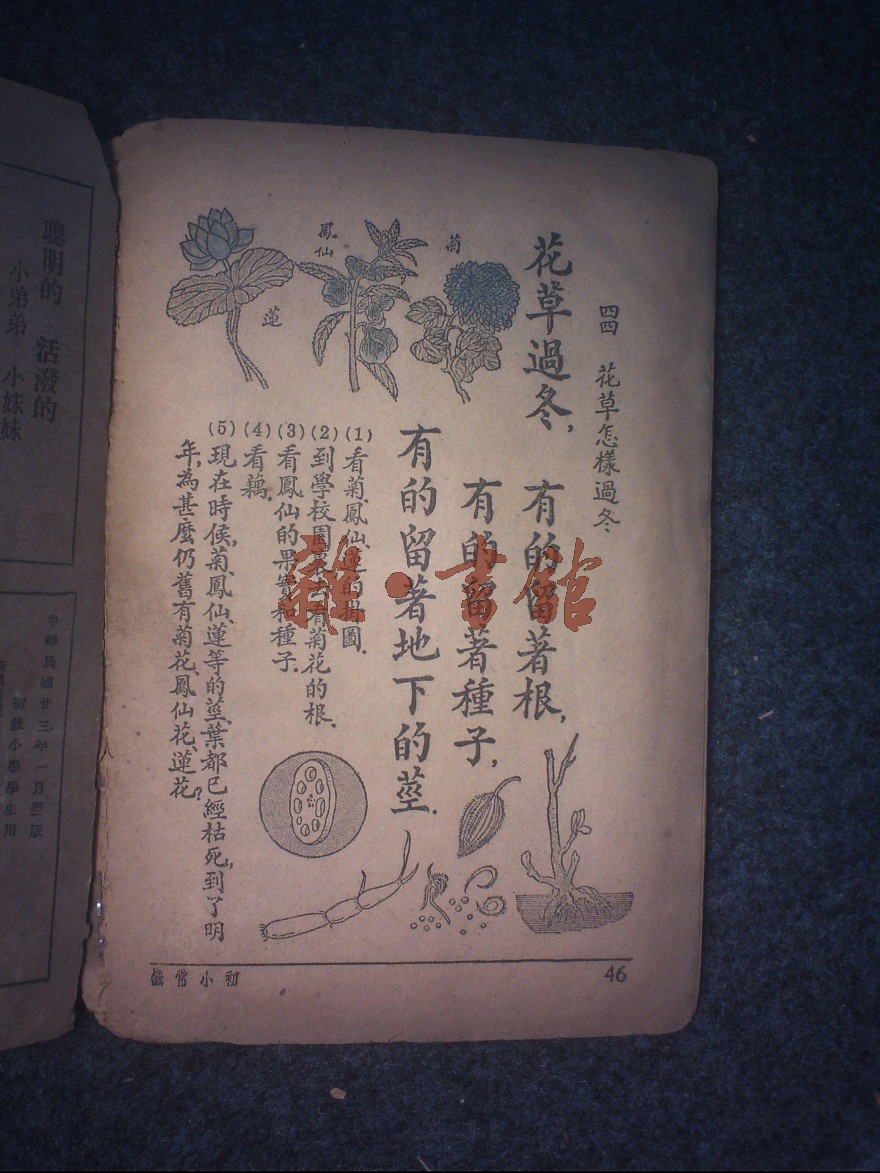 四四 花草怎樣過冬
花草過冬,
有的留著根,
有的留著種子,
有的留著地下的莖.
菊
鳳仙
蓮
(1) 看菊、鳳仙、蓮的掛圖.
(2) 到學校園裏去看菊花的根.
(3) 看鳳仙的果實和種子.
(4) 看藕.
(5) 現在時候,菊、鳳仙、蓮等的莖、葉都已經枯死,到了明
年,為甚麼仍舊有菊花、鳳仙花、蓮花?
初小常識
46
雜·書館
聰明的 活潑的
小弟弟 小妹妹
中華民國廿三年一月 版
初級小學學生用